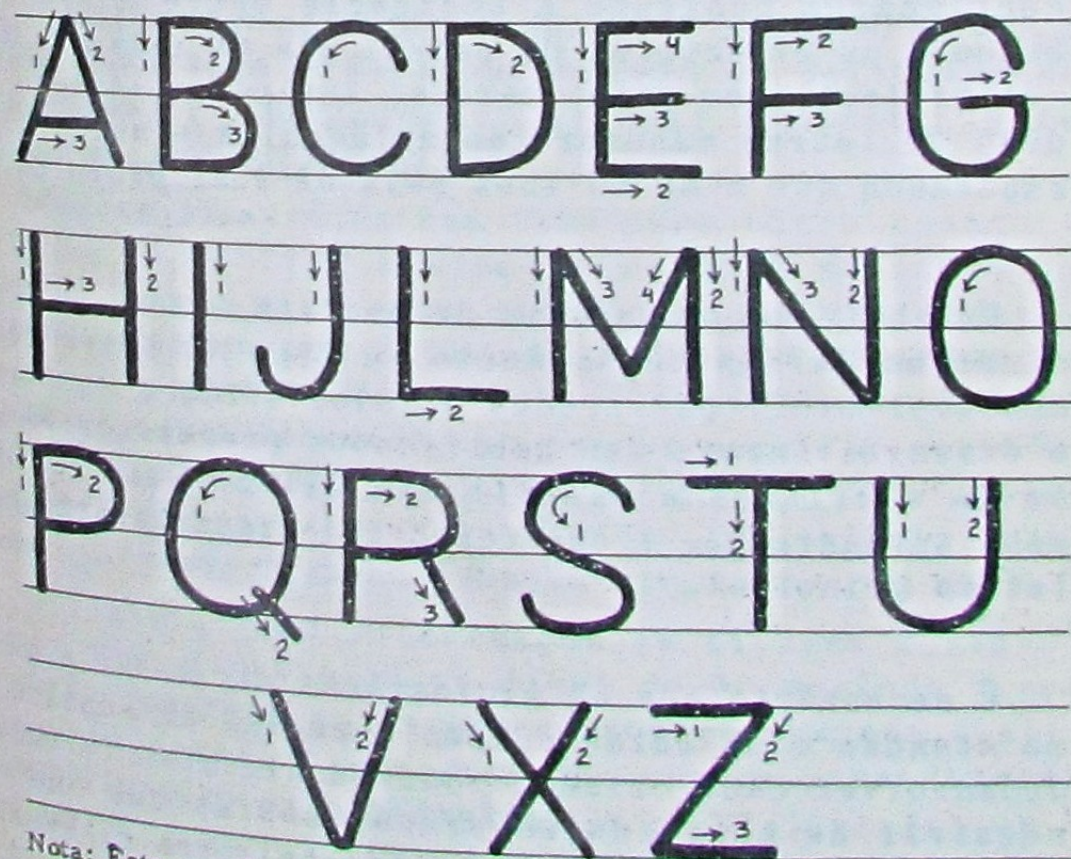 A B C D E F G
H I J L M N O
P Q R S T U
V X Z
Nota: